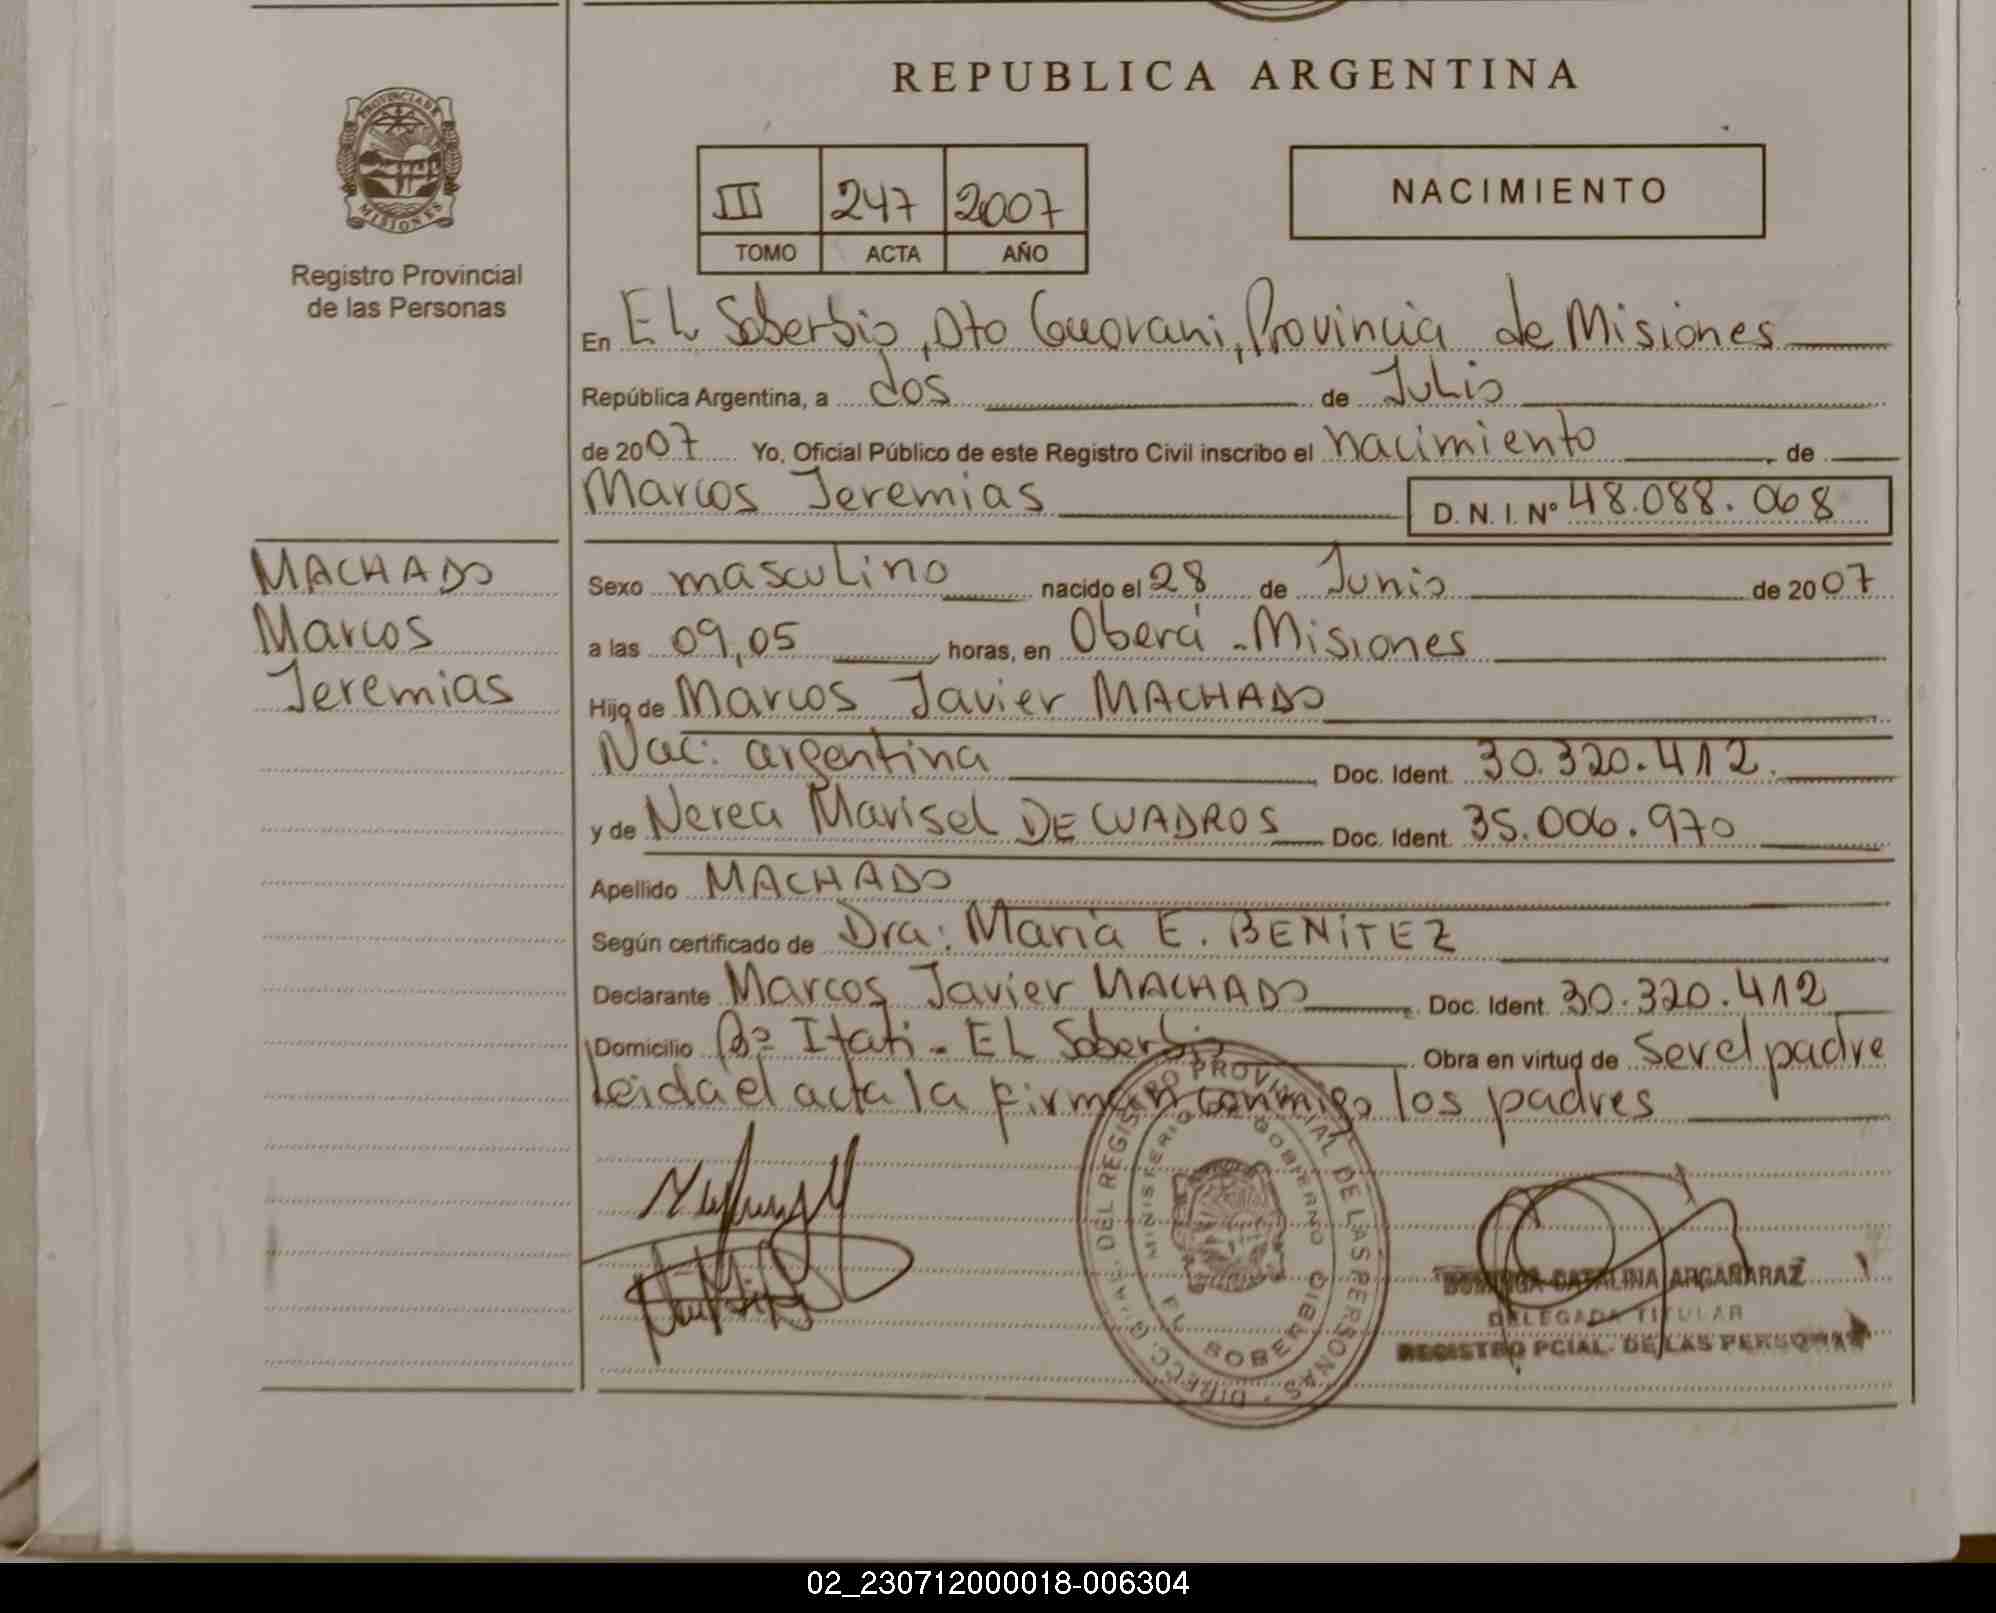 REPUBLICA ARGENTINA
PROVINCIA DE
MISIONES
Registro Provincial
de las Personas
III 247 2007
TOMO ACTA AÑO
NACIMIENTO
En EL Soberbio, Dto Guarani, Provincia de Misiones
República Argentina, a dos de Julio
de 2007 Yo, Oficial Público de este Registro Civil inscribo el nacimiento, de
Marcos Jeremias D. N. I. N° 48.088.068
MACHADO
Marcos
Jeremias
Sexo masculino nacido el 28 de Junio de 2007
a las 09,05, horas, en Oberá - Misiones
Hijo de Marcos Javier MACHADO
Nac: argentina Doc. Ident. 30.320.412.
y de Nerea Marisel DE CUADROS Doc. Ident. 35.006.970
Apellido MACHADO
Según certificado de Dra: María E. BENÍTEZ
Declarante Marcos Javier MACHADO Doc. Ident. 30.320.412
Domicilio Bº Itati - EL Soberbio Obra en virtud de ser el padre
Leida el acta la firman conmigo los padres
DIRECC. GRAL. DEL REGISTRO PROVINCIAL DE LAS PERSONAS
MINISTERIO GOBIERNO
EL SOBERBIO
CATALINA ARGAÑARAZ
DELEGADA TITULAR
REGISTRO PCIAL. DE LAS PERSONAS
02_230712000018-006304